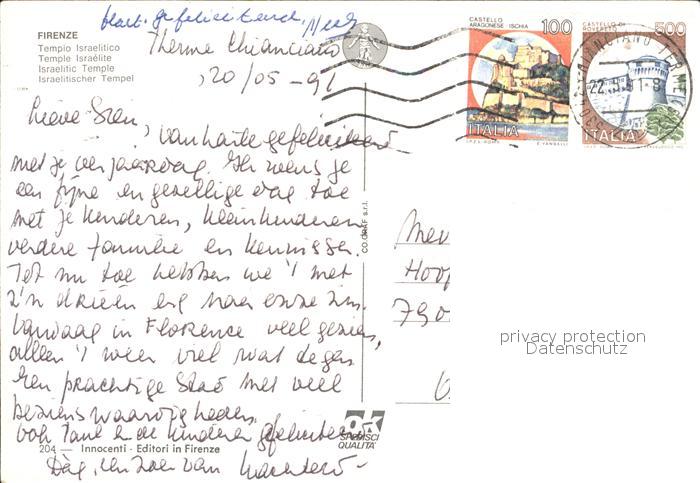 Hart. gefeliciteerd,
FIRENZE
Tempio Israelitico
Temple Israélite
Israelitic Temple
Israelitischer Tempel
Therme Chianciano
20/05-91
Lieve Sien,
Van harte gefeliciteerd
met je verjaardag. Ik wens je
een fijne en gezellige dag toe
met je kinderen, kleinkinderen
verdere familie en kennissen.
Tot nu toe hebben we 't met
z'n drieën erg naar onze zin.
Vandaag in Florence veel gezien,
alleen 't weer viel wat tegen
Een prachtige stad met veel
bezienswaardigheden.
ook Tant en de kinderen gefeliciteerd
204 — Innocenti - Editori in Firenze
Dag, een zoen van
CO.GRAF s.r.l.
ok
SPEDISCI
QUALITA'
CASTELLO
ARAGONESE ISCHIA
100
ITALIA
I.P.Z.S. ROMA
E. VANGELLI
CASTELLO DI
ROVERETO
500
ITALIA
CHIANCIANO TERME
22.5.91-8
Mev
Hoof
790
privacy protection
Datenschutz